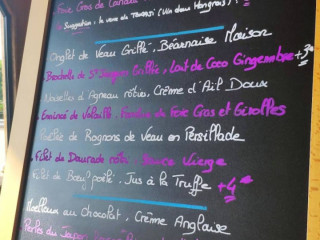 Foie Gras de Canard
Suggestion : le verre de Tokaji (Vin doux Hongrois)
Onglet de Veau Grillé, Béarnaise Maison
Brochette de St Jacques Grillée, Lait de Coco Gingembre +3€
Noisettes d'Agneau rôties, Crème d'Ail Doux
Émincé de Volaille, Foie Gras et Girolles
Poêlée de Rognons de Veau en Persillade
Filet de Daurade rôti, Sauce Vierge
Filet de Bœuf poêlé, Jus à la Truffe +4€
Moelleux au chocolat, Crème Anglaise
Perles du Japon